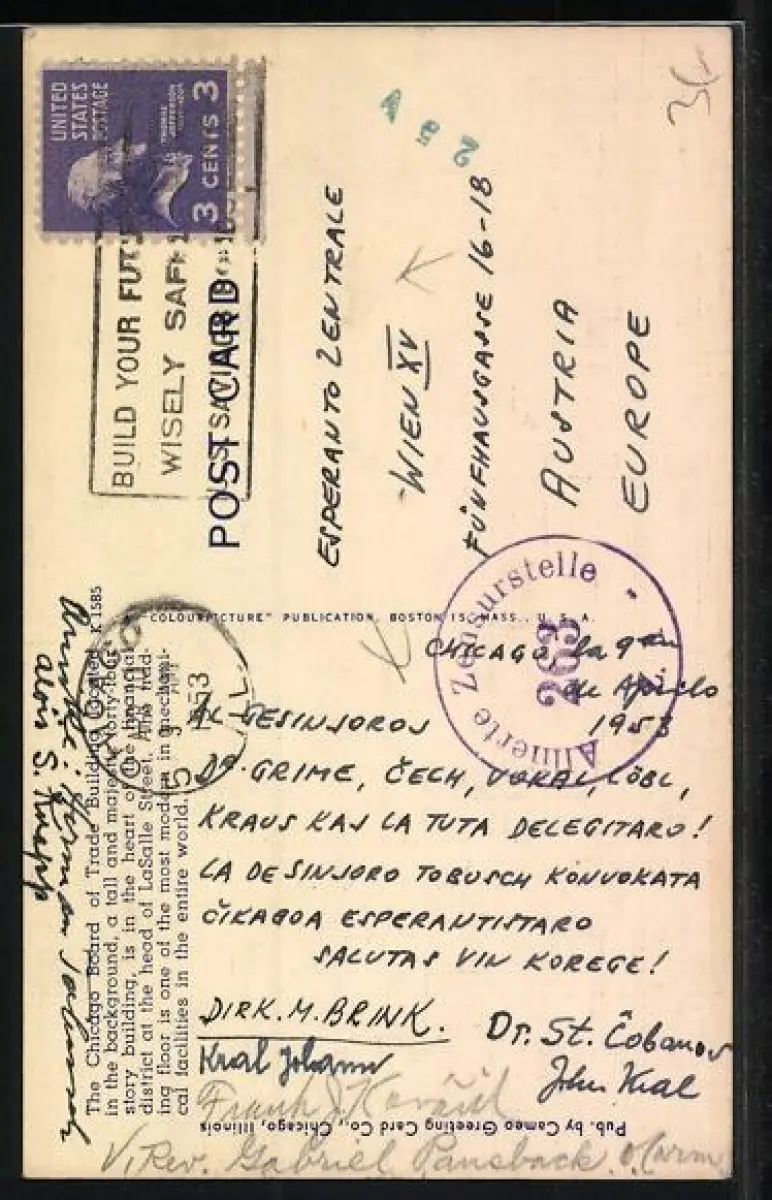 UNITED
STATES
POSTAGE
THOMAS
JEFFERSON
3 CENTS 3
BUILD YOUR FUT
WISELY SAFE
SAVINGS
POST CARD
ESPERANTO ZENTRALE
WIEN XV
FÜNFHAUSGASSE 16-18
AUSTRIA
EUROPE
Alliierte Zensurstelle
263
"COLOURPICTURE" PUBLICATION, BOSTON 15, MASS., U. S. A.
K 1585
The Chicago Board of Trade Building located
in the background, a tall and majestic forty-four
story building, is in the heart of the financial
district at the head of LaSalle Street. The trad-
ing floor is one of the most modern in mechani-
cal facilities in the entire world.
CHICAGO la 9an
de Aprilo
1953
AL GESINJOROJ
DR. GRIME, ČECH, VOKAL, LÖBL,
KRAUS KAJ LA TUTA DELEGITARO!
LA DE SINJORO TOBUSCH KONVOKATA
ĈIKAGOA ESPERANTISTARO
SALUTAS VIN KOREGE!
DIRK. M. BRINK.
Dr. St. Čobanov
Kral Johann
John Kral
Frank J.
V. Rev. Gabriel Pausback O. Carm
alois S.
Pub. by Cameo Greeting Card Co., Chicago, Illinois